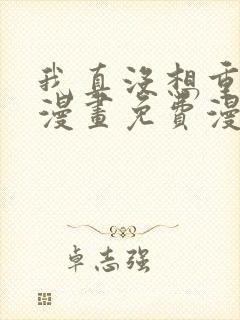 我真没想重
漫畫免費漫
卓志强